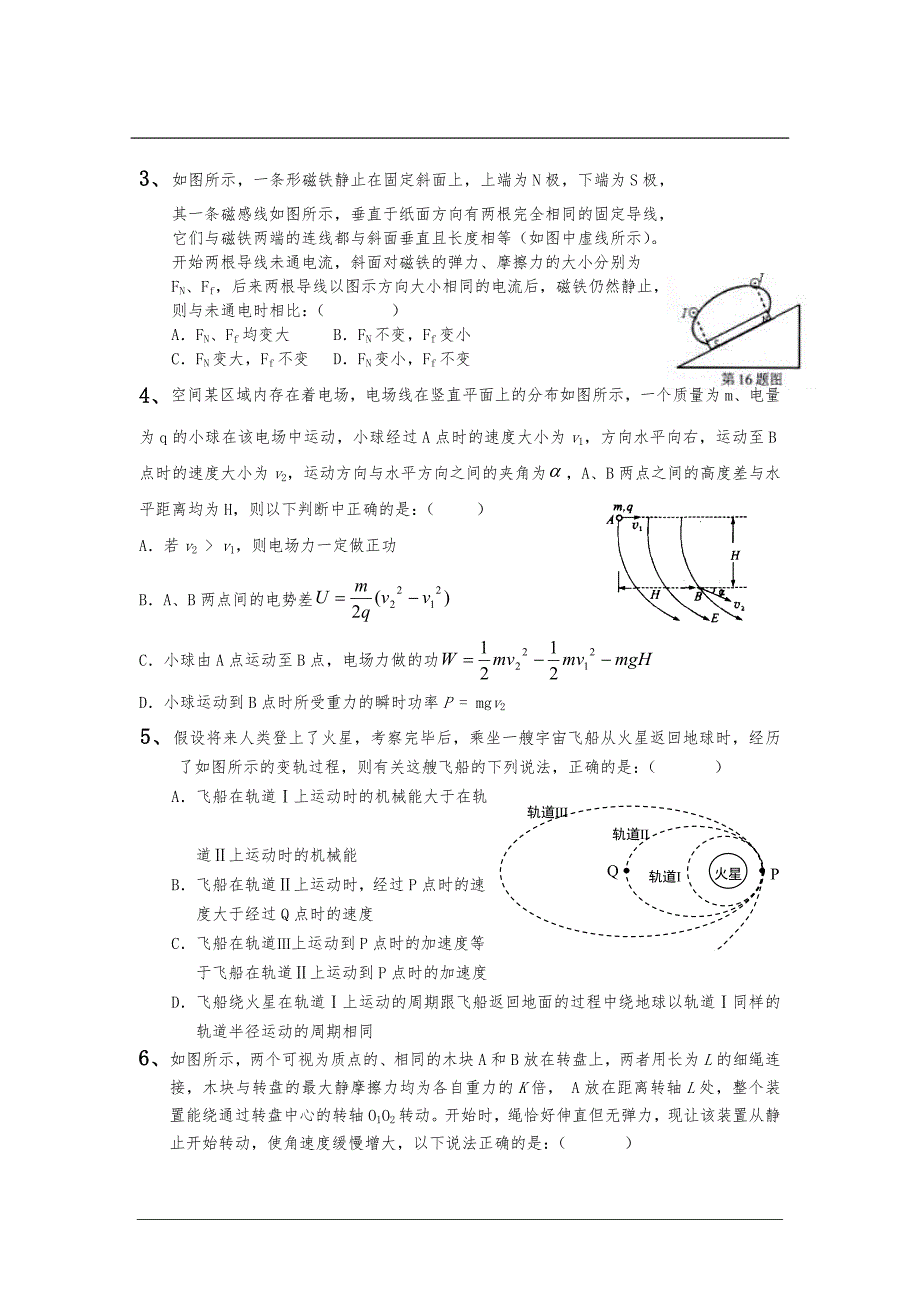 3、如图所示，一条形磁铁静止在固定斜面上，上端为N极，下端为S极，
其一条磁感线如图所示，垂直于纸面方向有两根完全相同的固定导线，
它们与磁铁两端的连线都与斜面垂直且长度相等（如图中虚线所示）。
开始两根导线未通电流，斜面对磁铁的弹力、摩擦力的大小分别为
FN、Ff，后来两根导线以图示方向大小相同的电流后，磁铁仍然静止，
则与未通电时相比：（ ）
A．FN、Ff均变大 B．FN不变，Ff变小
C．FN变大，Ff不变 D．FN变小，Ff不变
I
I
S
N
第16题图
4、空间某区域内存在着电场，电场线在竖直平面上的分布如图所示，一个质量为m、电量
为q的小球在该电场中运动，小球经过A点时的速度大小为v1，方向水平向右，运动至B
点时的速度大小为v2，运动方向与水平方向之间的夹角为α，A、B两点之间的高度差与水
平距离均为H，则以下判断中正确的是：（ ）
A．若v2 > v1，则电场力一定做正功
B．A、B两点间的电势差U = m/2q (v2² − v1²)
C．小球由A点运动至B点，电场力做的功W = 1/2 mv2² − 1/2 mv1² − mgH
D．小球运动到B点时所受重力的瞬时功率P = mgv2
m,q
A
v1
H
H
B
α
v2
E
5、假设将来人类登上了火星，考察完毕后，乘坐一艘宇宙飞船从火星返回地球时，经历
了如图所示的变轨过程，则有关这艘飞船的下列说法，正确的是：（ ）
A．飞船在轨道Ⅰ上运动时的机械能大于在轨
道Ⅱ上运动时的机械能
B．飞船在轨道Ⅱ上运动时，经过P点时的速
度大于经过Q点时的速度
C．飞船在轨道Ⅲ上运动到P点时的加速度等
于飞船在轨道Ⅱ上运动到P点时的加速度
D．飞船绕火星在轨道Ⅰ上运动的周期跟飞船返回地面的过程中绕地球以轨道Ⅰ同样的
轨道半径运动的周期相同
轨道Ⅲ
轨道Ⅱ
Q
轨道Ⅰ
火星
P
6、如图所示，两个可视为质点的、相同的木块A和B放在转盘上，两者用长为L的细绳连
接，木块与转盘的最大静摩擦力均为各自重力的K倍， A放在距离转轴L处，整个装
置能绕通过转盘中心的转轴O1O2转动。开始时，绳恰好伸直但无弹力，现让该装置从静
止开始转动，使角速度缓慢增大，以下说法正确的是：（ ）